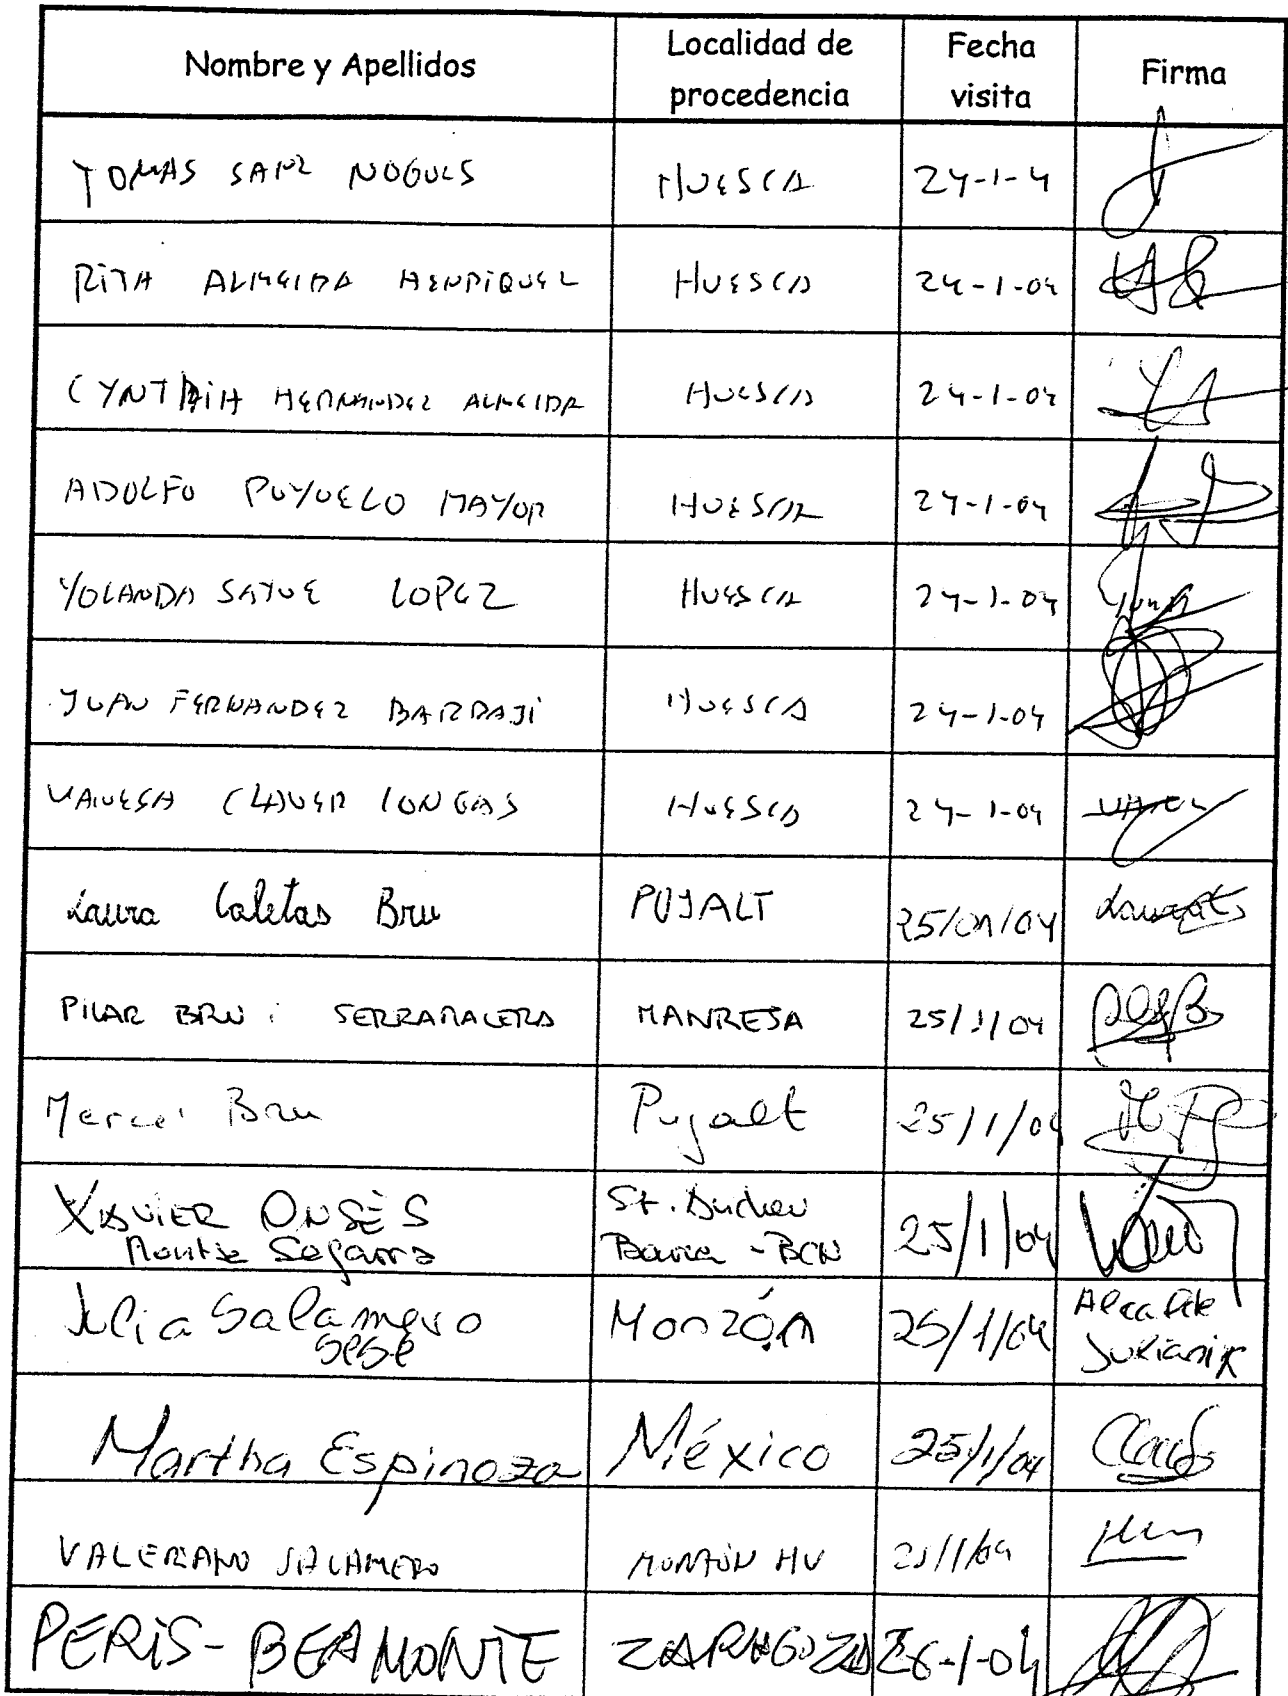 Nombre y Apellidos Localidad de procedencia Fecha visita Firma
TOMAS SANZ NOGUES HUESCA 24-1-4
RITA ALMEIDA HENRIQUEZ HUESCA 24-1-04
CYNTHIA HERNANDEZ ALMEIDA HUESCA 24-1-04
ADOLFO PUYUELO MAYOR HUESCA 24-1-04
YOLANDA SATUE LOPEZ HUESCA 24-1-04
JUAN FERNANDEZ BARRAJI HUESCA 24-1-04
VANESA CLAVER LONGAS HUESCA 24-1-04
Laura Caletas Bru PUJALT 25/01/04
PILAR BRU i SERRARALERA MANRESA 25/1/04
Mercè Bru Pujalt 25/1/04
XAVIER ONSÈS St. Andreu
Segarra Barca - BCN 25/1/04
Julia Salamero Monzón 25/1/04 Alcalde
Sesé
Martha Espinoza México 25/1/04
VALERIANO SALAMERO MONZÓN HU 25/1/04
PERIS-BEAMONTE ZARAGOZA 26-1-04